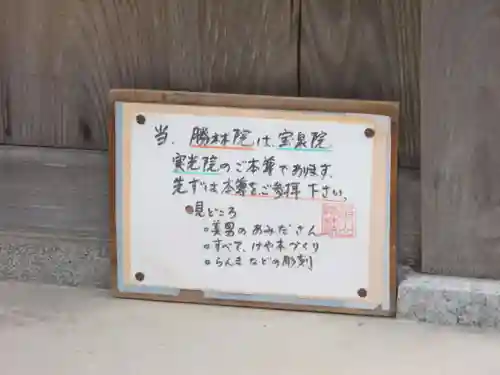 当、勝林院は、宝泉院
実光院のご本尊であります。
先ずは本尊をご参拝下さい。
見どころ
美男のあみださん
すべて、けや木づくり
らんまなどの彫刻